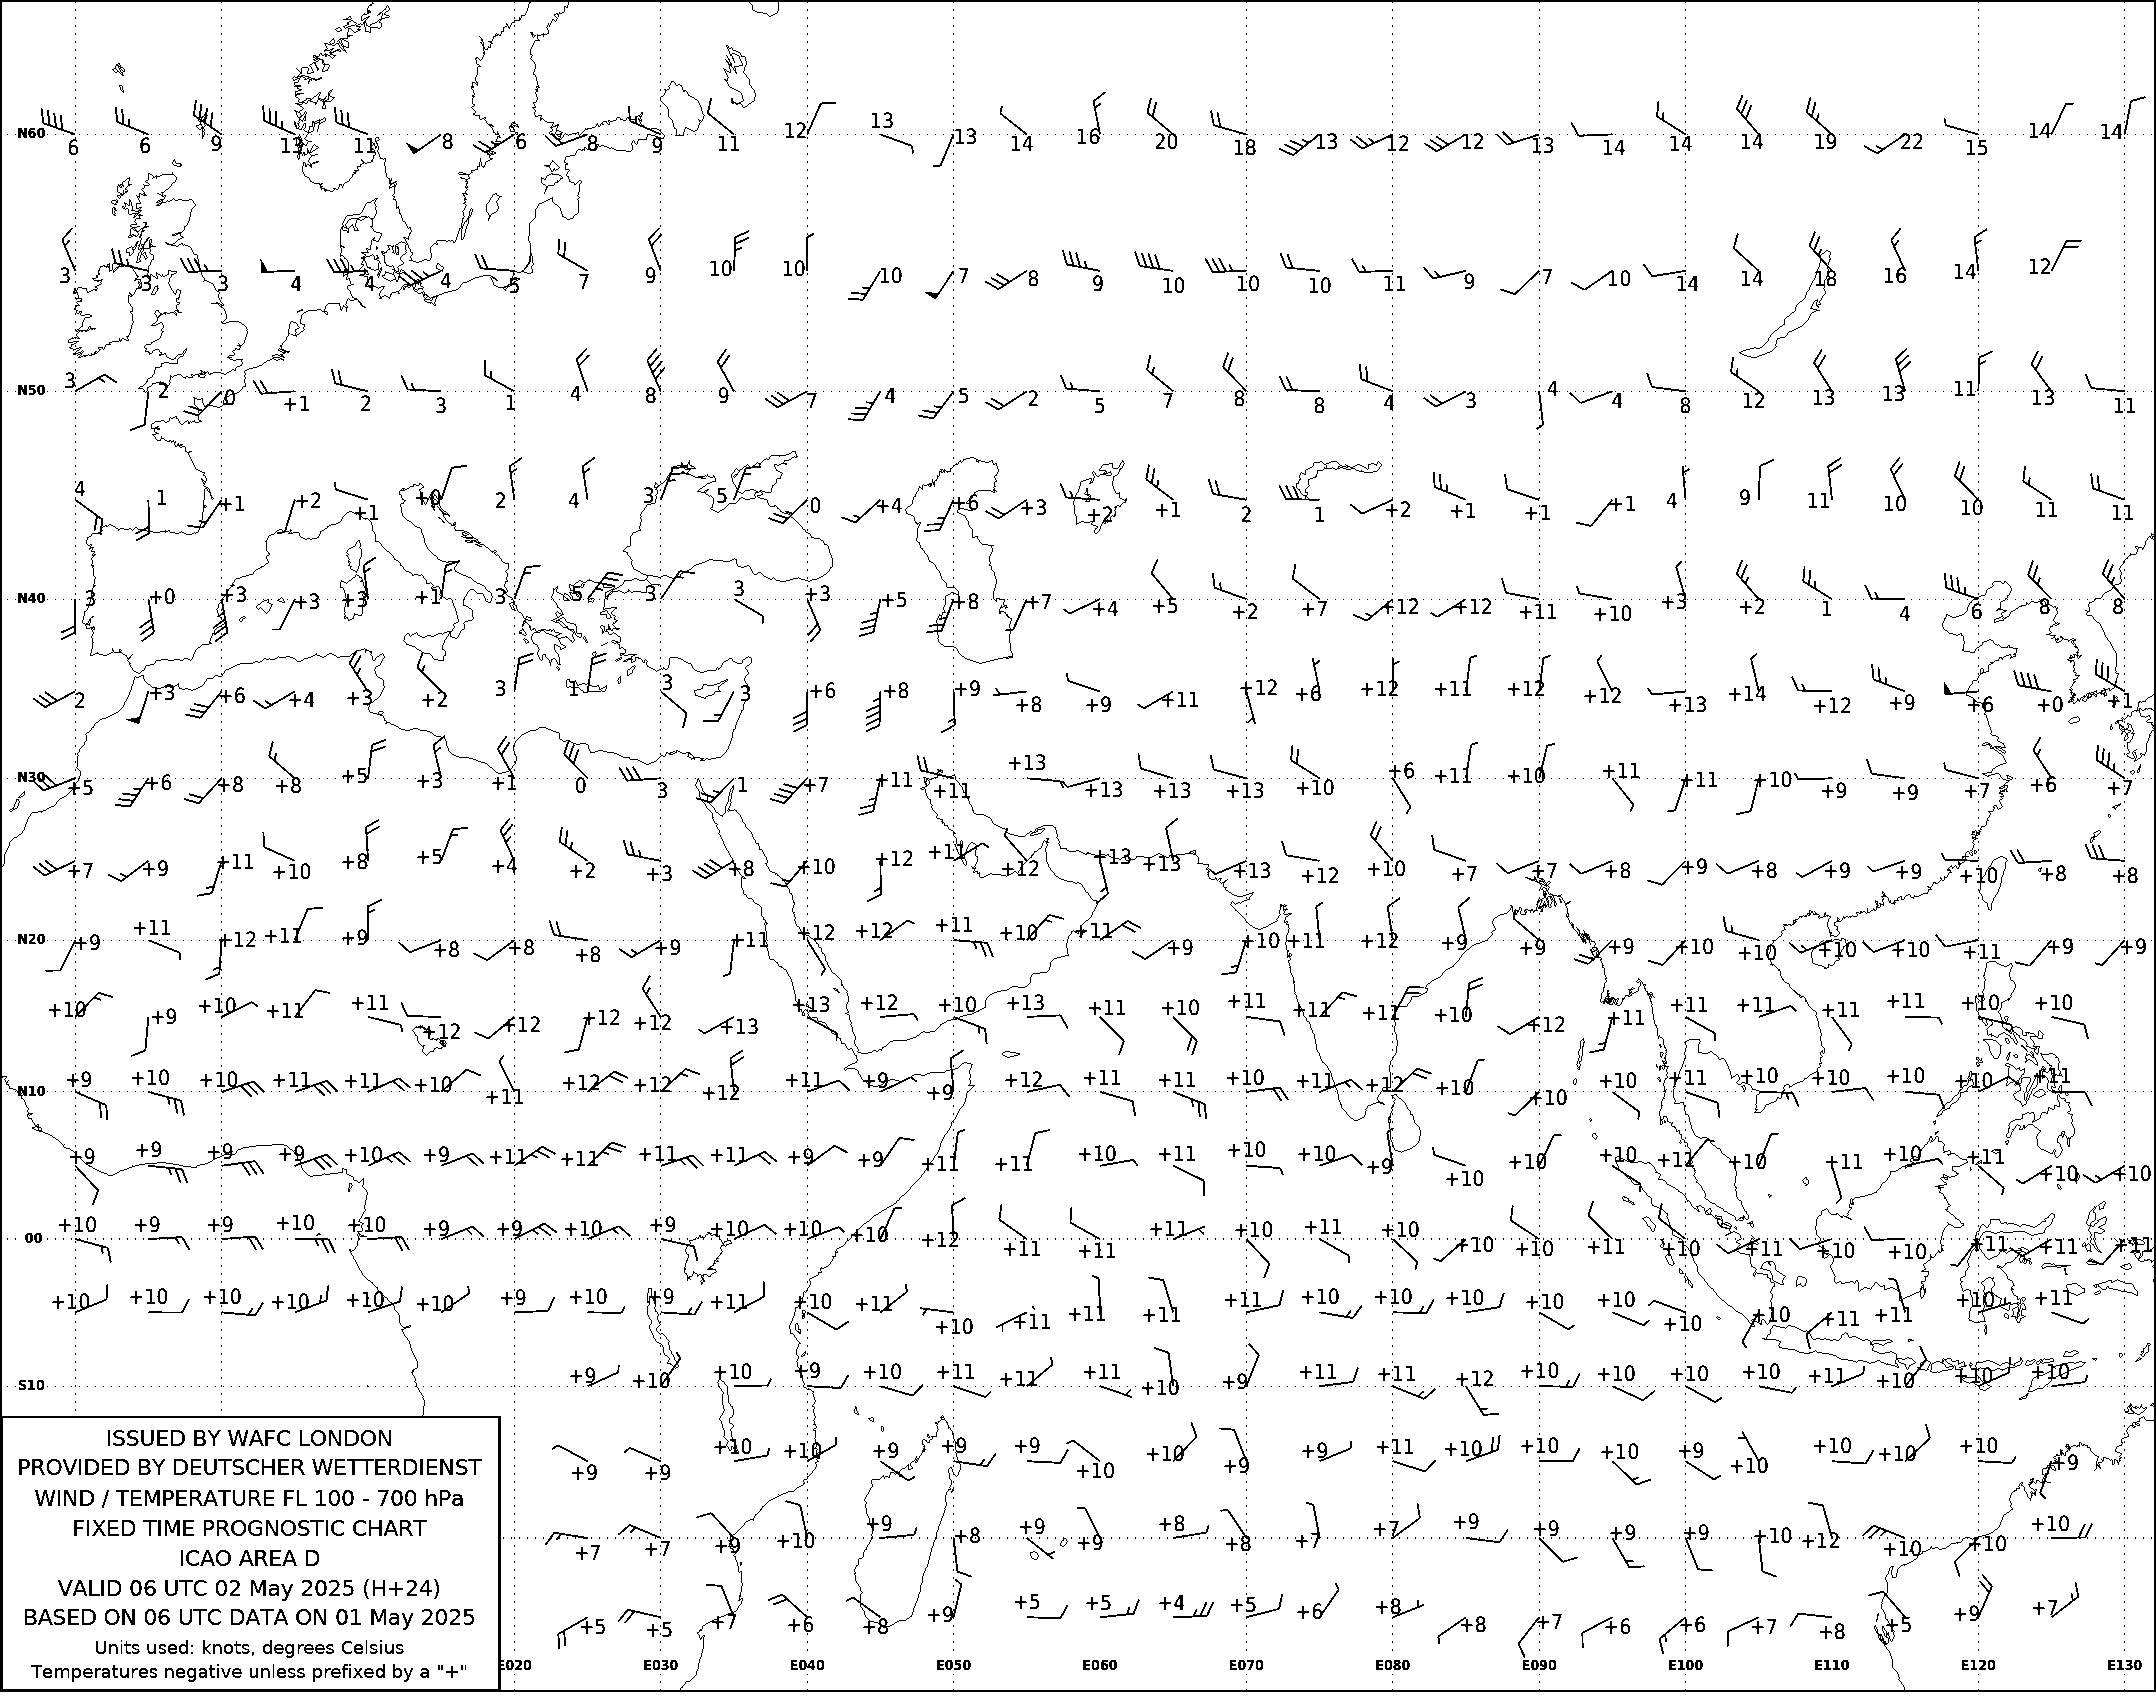 N60 6 6 9 13 11 8 6 8 9 11 12 13 13 14 16 20 18 13 12 12 13 14 14 14 19 22 15 14 14
3 3 3 4 4 4 5 7 9 10 10 10 7 8 9 10 10 10 11 9 7 10 14 14 18 16 14 12
N50 3 2 0 +1 2 3 1 4 8 9 7 4 5 2 5 7 8 8 4 3 4 4 8 12 13 13 11 13 11
4 1 +1 +2 +1 +0 2 4 3 5 0 +4 +6 +3 +2 +1 2 1 +2 +1 +1 +1 4 9 11 10 10 11 11
N40 3 +0 +3 +3 +3 +1 3 5 3 3 +3 +5 +8 +7 +4 +5 +2 +7 +12 +12 +11 +10 +3 +2 1 4 6 8 8
2 +3 +6 +4 +3 +2 3 1 3 3 +6 +8 +9 +8 +9 +11 +12 +6 +12 +11 +12 +12 +13 +14 +12 +9 +6 +0 +1
N30 +5 +6 +8 +8 +5 +3 +1 0 3 1 +7 +11 +11 +13 +13 +13 +13 +10 +6 +11 +10 +11 +11 +10 +9 +9 +7 +6 +7
+7 +9 +11 +10 +8 +5 +4 +2 +3 +8 +10 +12 +11 +12 +13 +13 +13 +12 +10 +7 +7 +8 +9 +8 +9 +9 +10 +8 +8
N20 +9 +11 +12 +11 +9 +8 +8 +8 +9 +11 +12 +12 +11 +10 +11 +9 +10 +11 +12 +9 +9 +9 +10 +10 +10 +10 +11 +9 +9
+10 +9 +10 +11 +11 +12 +12 +12 +12 +13 +13 +12 +10 +13 +11 +10 +11 +11 +11 +10 +12 +11 +11 +11 +11 +11 +10 +10
N10 +9 +10 +10 +11 +11 +10 +11 +12 +12 +12 +11 +9 +9 +12 +11 +11 +10 +11 +12 +10 +10 +10 +11 +10 +10 +10 +10 +11
+9 +9 +9 +9 +10 +9 +11 +12 +11 +11 +9 +9 +11 +11 +10 +11 +10 +10 +9 +10 +10 +10 +12 +10 +11 +10 +11 +10 +10
00 +10 +9 +9 +10 +10 +9 +9 +10 +9 +10 +10 +10 +12 +11 +11 +11 +10 +11 +10 +10 +10 +11 +10 +11 +10 +10 +11 +11 +11
+10 +10 +10 +10 +10 +10 +9 +10 +9 +11 +10 +11 +10 +11 +11 +11 +11 +10 +10 +10 +10 +10 +10 +10 +11 +11 +10 +11
S10 +9 +10 +10 +9 +10 +11 +11 +11 +10 +9 +11 +11 +12 +10 +10 +10 +10 +11 +10 +10 +10
+9 +9 +10 +10 +9 +9 +9 +10 +10 +9 +9 +11 +10 +10 +10 +9 +10 +10 +10 +10 +9
+7 +7 +9 +10 +9 +8 +9 +9 +8 +8 +7 +7 +9 +9 +9 +9 +10 +12 +10 +10 +10
+5 +5 +7 +6 +8 +9 +5 +5 +4 +5 +6 +8 +8 +7 +6 +6 +7 +8 +5 +9 +7
E020 E030 E040 E050 E060 E070 E080 E090 E100 E110 E120 E130
ISSUED BY WAFC LONDON
PROVIDED BY DEUTSCHER WETTERDIENST
WIND / TEMPERATURE FL 100 - 700 hPa
FIXED TIME PROGNOSTIC CHART
ICAO AREA D
VALID 06 UTC 02 May 2025 (H+24)
BASED ON 06 UTC DATA ON 01 May 2025
Units used: knots, degrees Celsius
Temperatures negative unless prefixed by a "+"